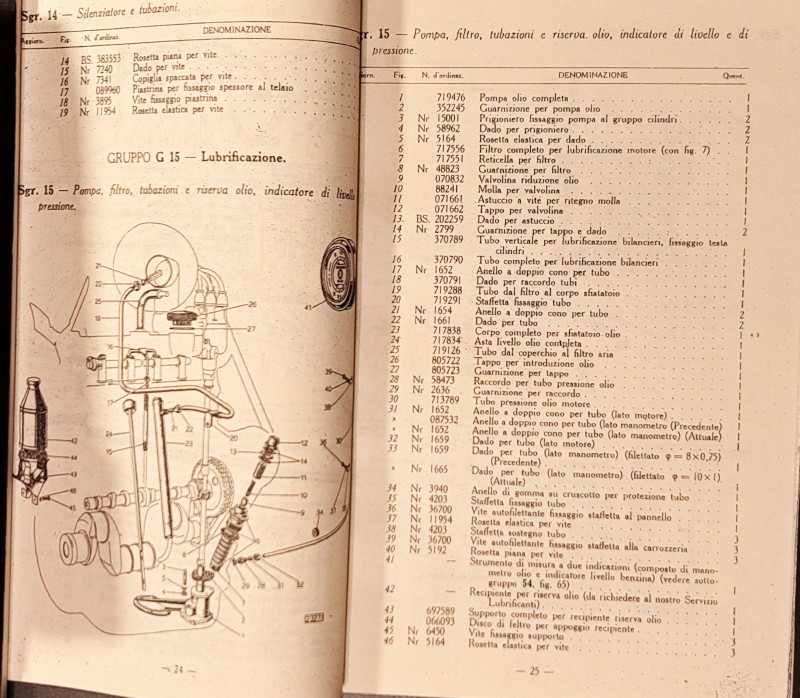 Sgr. 14 — Silenziatore e tubazioni.
Aggiorn. Fig. N. d'ordinaz. DENOMINAZIONE
14 BS. 383553 Rosetta piana per vite
15 Nr 7240 Dado per vite
16 Nr 7341 Copiglia spaccata per vite
17 089960 Piastrina per fissaggio spessore al telaio
18 Nr 3895 Vite fissaggio piastrina
19 Nr 11954 Rosetta elastica per vite
GRUPPO G 15 — Lubrificazione.
Sgr. 15 — Pompa, filtro, tubazioni e riserva olio, indicatore di livello
pressione.
— 24 —
r. 15 — Pompa, filtro, tubazioni e riserva olio, indicatore di livello e di
pressione.
orn. Fig. N. d'ordinaz. DENOMINAZIONE Quant.
1 719476 Pompa olio completa 1
2 352245 Guarnizione per pompa olio 1
3 Nr 15001 Prigioniero fissaggio pompa al gruppo cilindri 2
4 Nr 58962 Dado per prigioniero 2
5 Nr 5164 Rosetta elastica per dado 2
6 717556 Filtro completo per lubrificazione motore (con fig. 7) 1
7 717551 Reticella per filtro 1
8 Nr 48823 Guarnizione per filtro 1
9 070832 Valvolina riduzione olio 1
10 88241 Molla per valvolina 1
11 071661 Astuccio a vite per ritegno molla 1
12 071662 Tappo per valvolina 1
13. BS. 202259 Dado per astuccio 1
14 Nr 2799 Guarnizione per tappo e dado 2
15 370789 Tubo verticale per lubrificazione bilancieri, fissaggio testa
cilindri 1
16 370790 Tubo completo per lubrificazione bilancieri 1
17 Nr 1652 Anello a doppio cono per tubo 1
18 370791 Dado per raccordo tubi 1
19 719288 Tubo dal filtro al corpo sfiatatoio 1
20 719291 Staffetta fissaggio tubo 1
21 Nr 1654 Anello a doppio cono per tubo 2
22 Nr 1661 Dado per tubo 2
23 717838 Corpo completo per sfiatatoio olio 1
24 717834 Asta livello olio completa 1
25 719126 Tubo dal coperchio al filtro aria 1
26 805722 Tappo per introduzione olio 1
27 805723 Guarnizione per tappo 1
28 Nr 58473 Raccordo per tubo pressione olio 1
29 Nr 2636 Guarnizione per raccordo 1
30 713789 Tubo pressione olio motore 1
31 Nr 1652 Anello a doppio cono per tubo (lato motore) 1
» 087532 Anello a doppio cono per tubo (lato manometro) (Precedente) 1
» Nr 1652 Anello a doppio cono per tubo (lato manometro) (Attuale) 1
32 Nr 1659 Dado per tubo (lato motore) 1
33 Nr 1659 Dado per tubo (lato manometro) (filettato φ = 8×0,75)
(Precedente) 1
» Nr 1665 Dado per tubo (lato manometro) (filettato φ = 10×1)
(Attuale) 1
34 Nr 3940 Anello di gomma su cruscotto per protezione tubo 1
35 Nr 4203 Staffetta fissaggio tubo 1
36 Nr 36700 Vite autofilettante fissaggio staffetta al pannello 1
37 Nr 11954 Rosetta elastica per vite 1
38 Nr 4203 Staffetta sostegno tubo 3
39 Nr 36700 Vite autofilettante fissaggio staffetta alla carrozzeria 3
40 Nr 5192 Rosetta piana per vite 3
41 — Strumento di misura a due indicazioni (composto di mano-
metro olio e indicatore livello benzina) (vedere sotto-
gruppo 54, fig. 65) 1
42 — Recipiente per riserva olio (da richiedere al nostro Servizio
Lubrificanti) 1
43 697589 Supporto completo per recipiente riserva olio 1
44 066093 Disco di feltro per appoggio recipiente 1
45 Nr 6450 Vite fissaggio supporto 3
46 Nr 5164 Rosetta elastica per vite 3
— 25 —